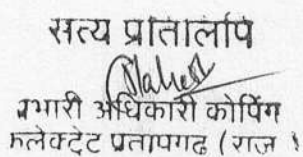 सत्य प्रतिलिपि
प्रभारी अधिकारी कोपिंग
कलेक्ट्रेट प्रतापगढ (राज